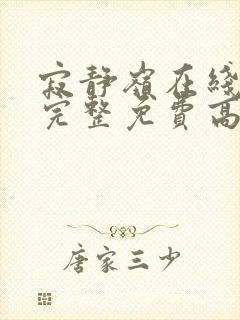 寂静岭在线
完整免费高
唐家三少